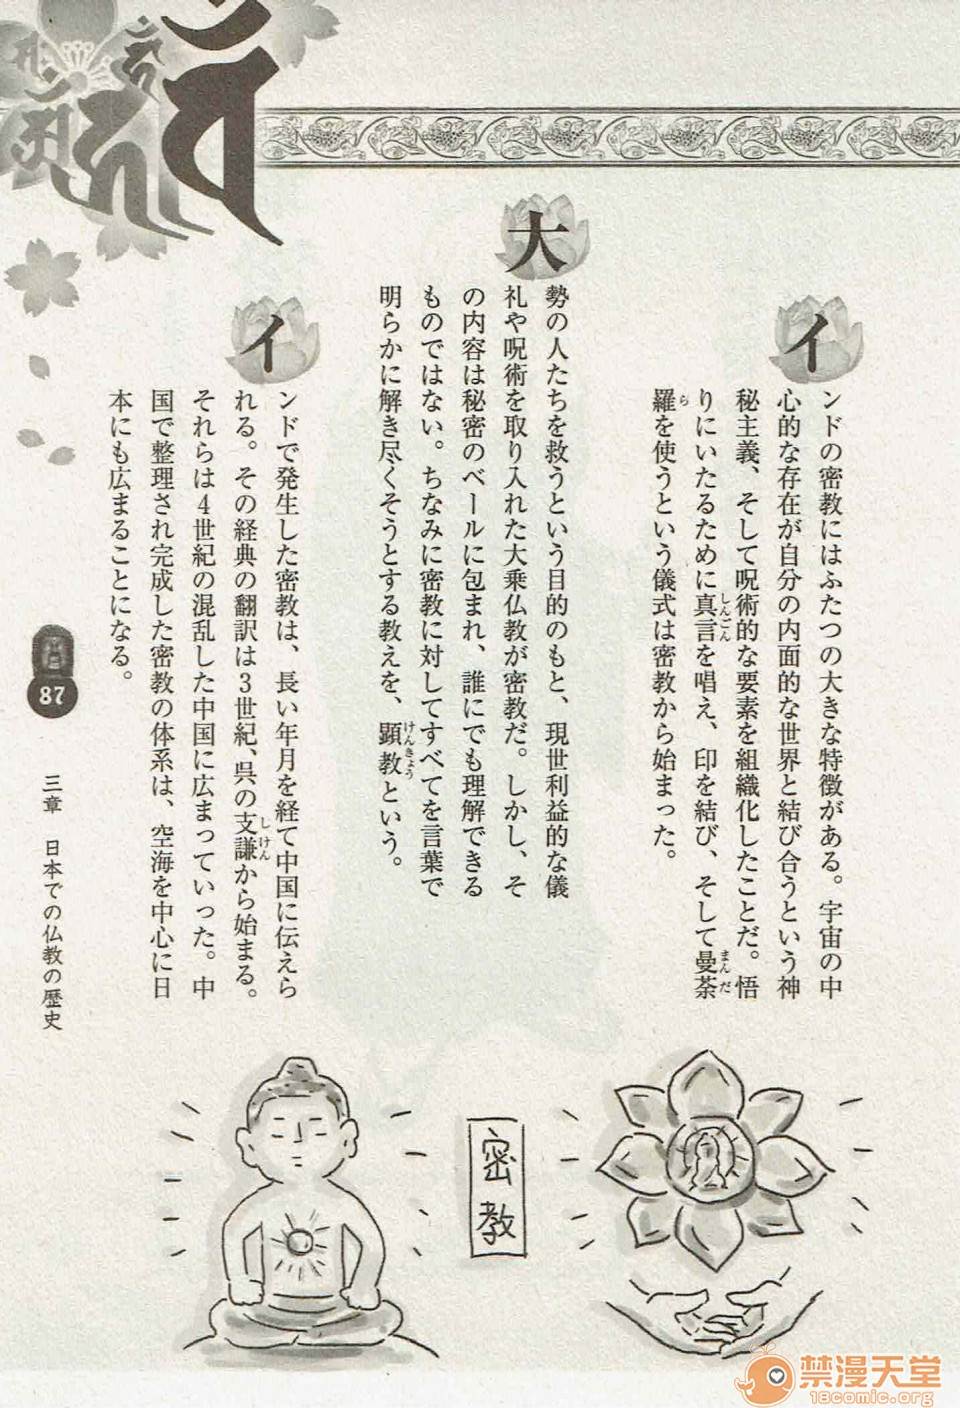 イ
ンドの密教にはふたつの大きな特徴がある。宇宙の中
心的な存在が自分の内面的な世界と結び合うという神
秘主義、そして呪術的な要素を組織化したことだ。悟
りにいたるために真言を唱え、印を結び、そして曼荼
羅を使うという儀式は密教から始まった。
しんごん
まんだ
ら
大
勢の人たちを救うという目的のもと、現世利益的な儀
礼や呪術を取り入れた大乗仏教が密教だ。しかし、そ
の内容は秘密のベールに包まれ、誰にでも理解できる
ものではない。ちなみに密教に対してすべてを言葉で
明らかに解き尽くそうとする教えを、顕教という。
けんきょう
イ
ンドで発生した密教は、長い年月を経て中国に伝えら
れる。その経典の翻訳は3世紀、呉の支謙から始まる。
しけん
それらは4世紀の混乱した中国に広まっていった。中
国で整理され完成した密教の体系は、空海を中心に日
本にも広まることになる。
密教
87
三章 日本での仏教の歴史
禁漫天堂
18comic.org